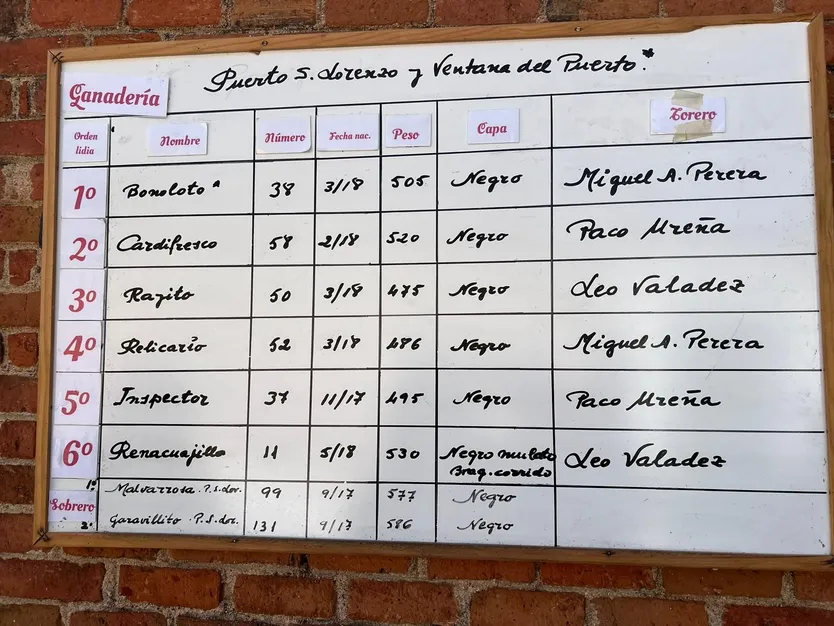 Puerto S. Lorenzo y Ventana del Puerto.*
Ganadería
Orden lidia Nombre Número Fecha nac. Peso Capa Torero
1º Bonoloto * 38 3/18 505 Negro Miguel A. Perera
2º Cardifresco 58 2/18 520 Negro Paco Ureña
3º Rajito 50 3/18 475 Negro Leo Valadez
4º Relicario 52 3/18 486 Negro Miguel A. Perera
5º Inspector 37 11/17 495 Negro Paco Ureña
6º Renacuajillo 11 5/18 530 Negro mulato Leo Valadez
Brag. corrido
Sobrero 1º Malvarrosa. P.S.Lor. 99 9/17 577 Negro
2º Garavillito. P.S.Lor. 131 9/17 586 Negro